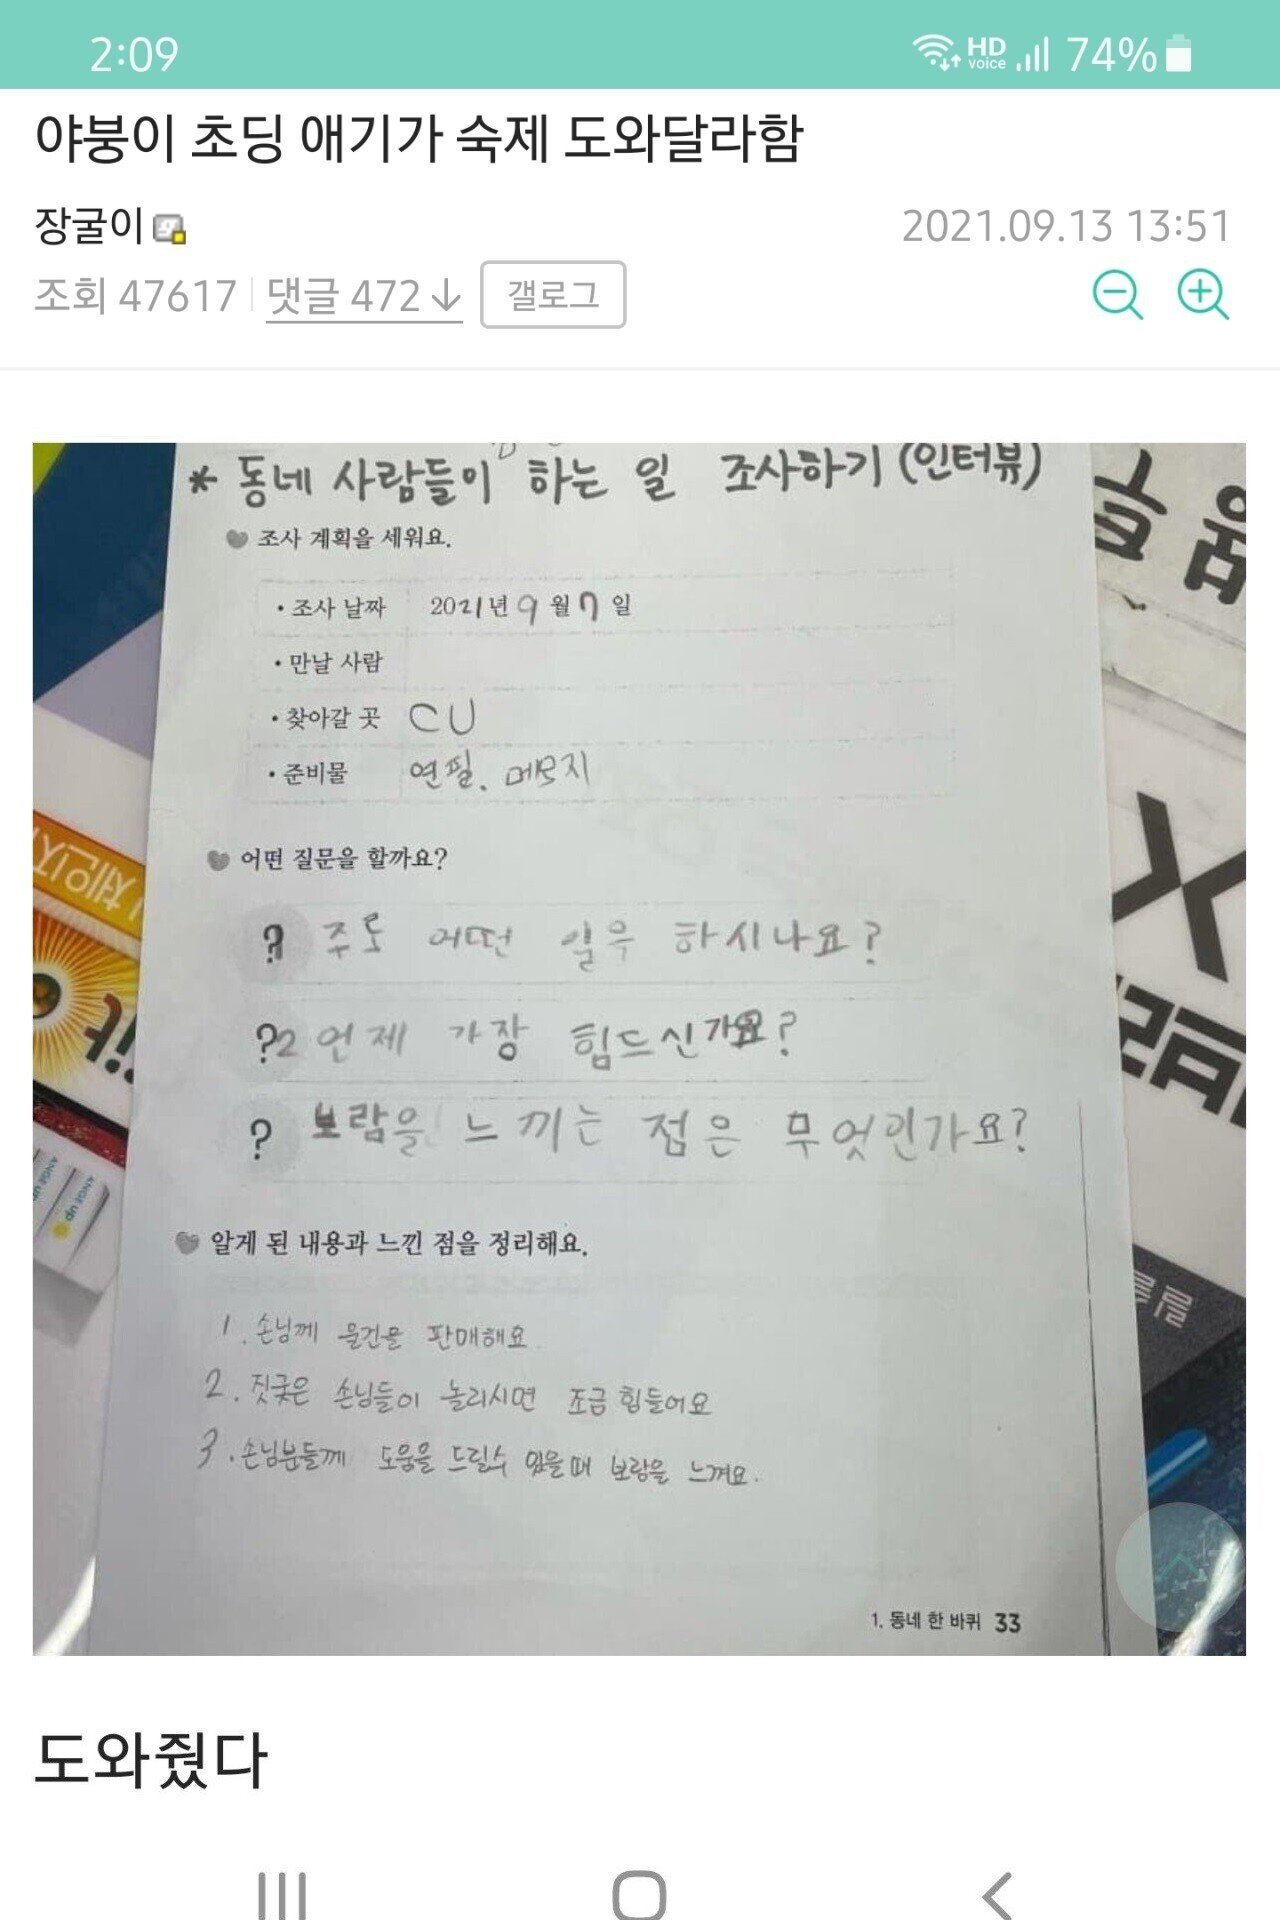 2:09
HD voice 74%
야붕이 초딩 애기가 숙제 도와달라함
장굴이
2021.09.13 13:51
조회 47617
댓글 472
갤로그
* 동네 사람들이 하는 일 조사하기 (인터뷰)
조사 계획을 세워요.
• 조사 날짜 2021년 9월 7일
• 만날 사람
• 찾아갈 곳 CU
• 준비물 연필. 메모지
어떤 질문을 할까요?
? 주로 어떤 일우 하시나요?
?2 언제 가장 힘드신가요?
? 보람을 느끼는 점은 무엇인가요?
알게 된 내용과 느낀 점을 정리해요.
1. 손님께 물건을 판매해요
2. 짓궂은 손님들이 놀리시면 조금 힘들어요
3. 손님분들께 도움을 드릴수 있을때 보람을 느껴요.
1. 동네 한 바퀴 33
도와줬다